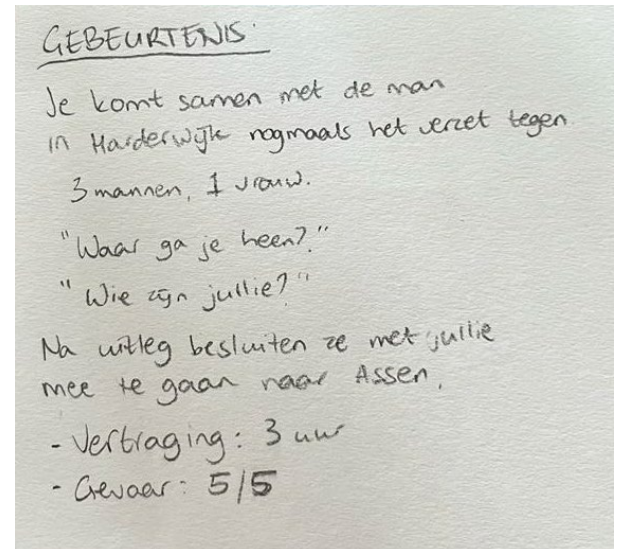 GEBEURTENIS.
Je komt samen met de man
in Harderwijk nogmaals het verzet tegen.
3 mannen, 1 vrouw.
"Waar ga je heen?"
"Wie zijn jullie?"
Na uitleg besluiten ze met jullie
mee te gaan naar Assen.
- Vertraging: 3 uur
- Gevaar: 5/5